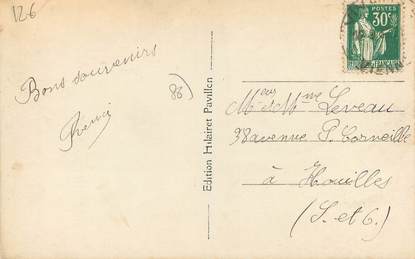 126
Bons souvenirs
86)
Edition Hilairet Pavillon
POSTES
30c
Meur et Mme Leveau
38 avenue P. Corneille
à Houilles
(S. et O.)